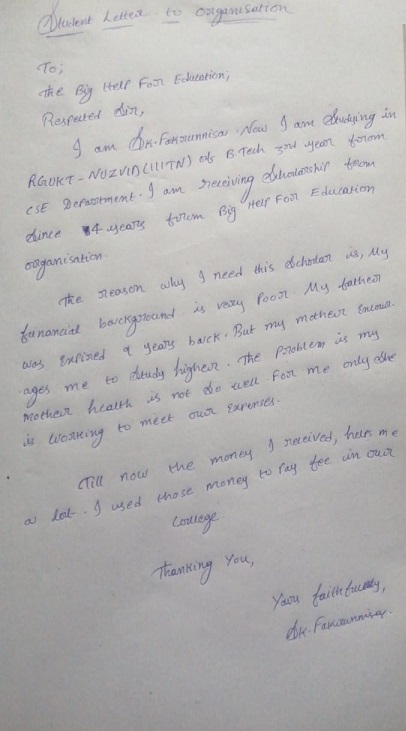 Student Letter to organisation
To;
The Big Help For Education,
Respected Sir,
I am Sk. Fakrunnisa. Now I am studying in
RGUKT - NUZVID (IIIT N) of B.Tech 3rd year from
CSE Department. I am receiving Scholarship from
since 4 years from Big Help For Education
organisation.
The reason why I need this scholar is, My
financial background is very Poor. My father
was Expired 9 years back. But my mother encour-
ages me to study higher. The Problem is my
mother health is not so well. For me only she
is working to meet our Expenses.
Till now the money I received, helps me
a lot. I used those money to Pay fee in our
College
Thanking You,
Yours faithfully,
Sk. Fakrunnisa.